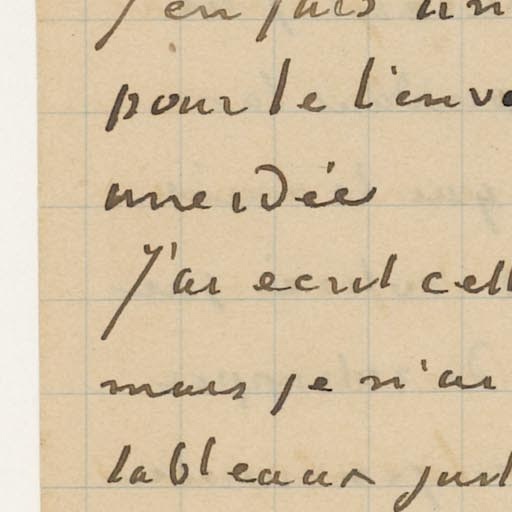 J'en fais un
pour te l'envo
une idée
J'ai ecrit cett
mais je n'ai
tableaux just